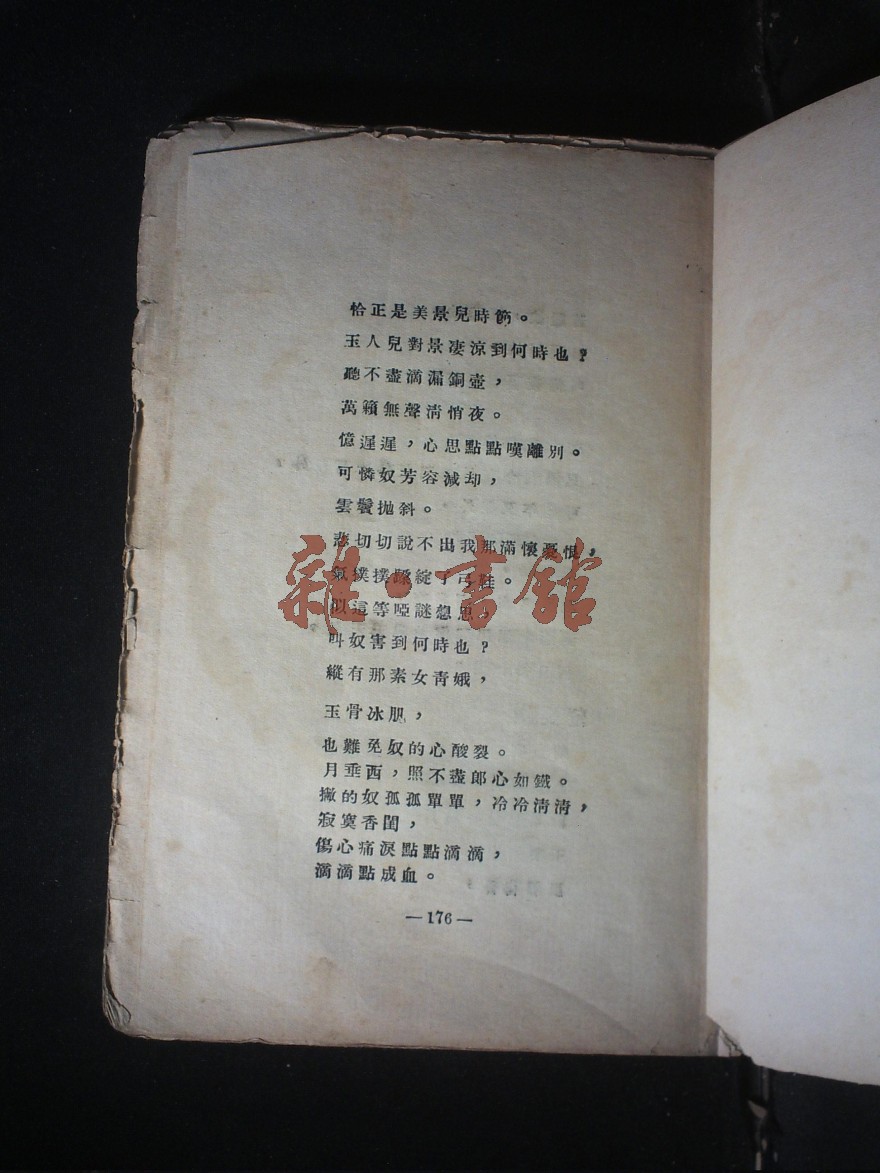 恰正是美景兒時節。
玉人兒對景凄涼到何時也？
聽不盡滿漏銅壺，
萬籟無聲淸悄夜。
憶遲遲，心思點點嘆離別。
可憐奴芳容減却，
雲鬢拋斜。
悲切切說不出我那滿懷憂恨，
氣撲撲 綻了弓鞋。
似這等啞謎 思，
叫奴害到何時也？
縱有那素女靑娥，
玉骨冰肌，
也難免奴的心酸裂。
月垂西，照不盡郎心如鐵。
撇的奴孤孤單單，冷冷淸淸，
寂寞香閨，
傷心痛淚點點滴滴，
滴滴點成血。
—176—
雜·書館